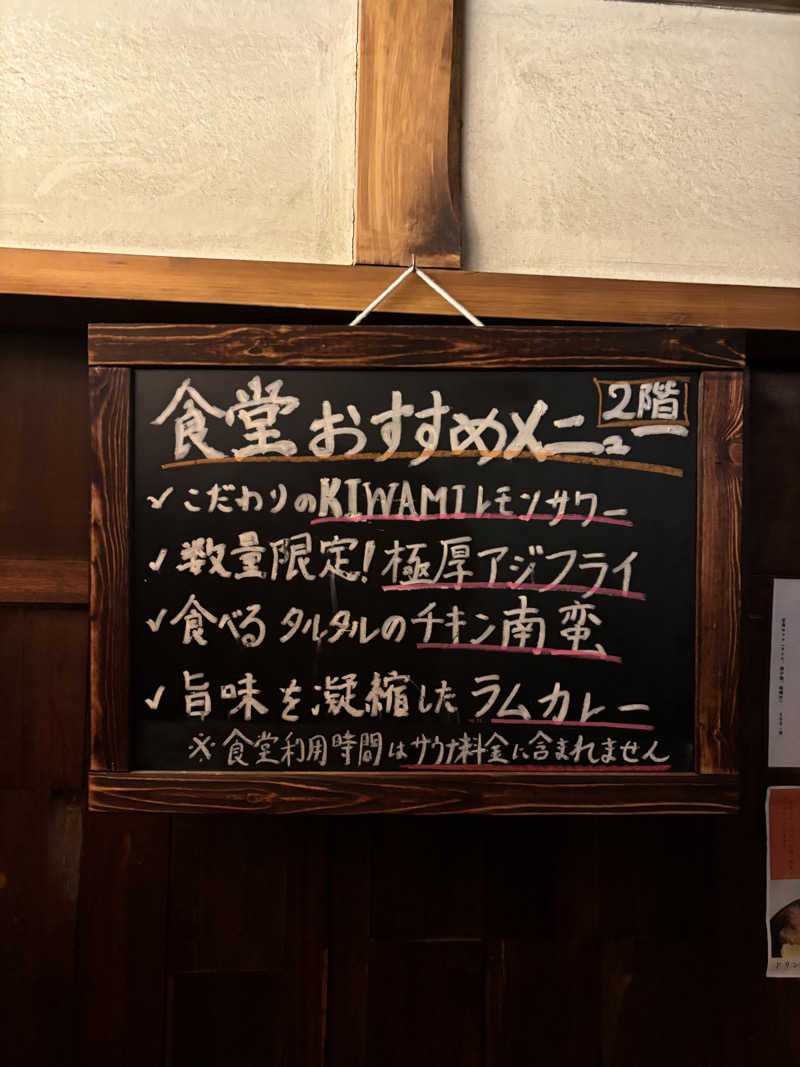 食堂おすすめメニュー 2階
✓ こだわりのKIWAMIレモンサワー
✓ 数量限定!極厚アジフライ
✓ 食べるタルタルのチキン南蛮
✓ 旨味を凝縮したラムカレー
※食堂利用時間はサウナ料金に含まれません